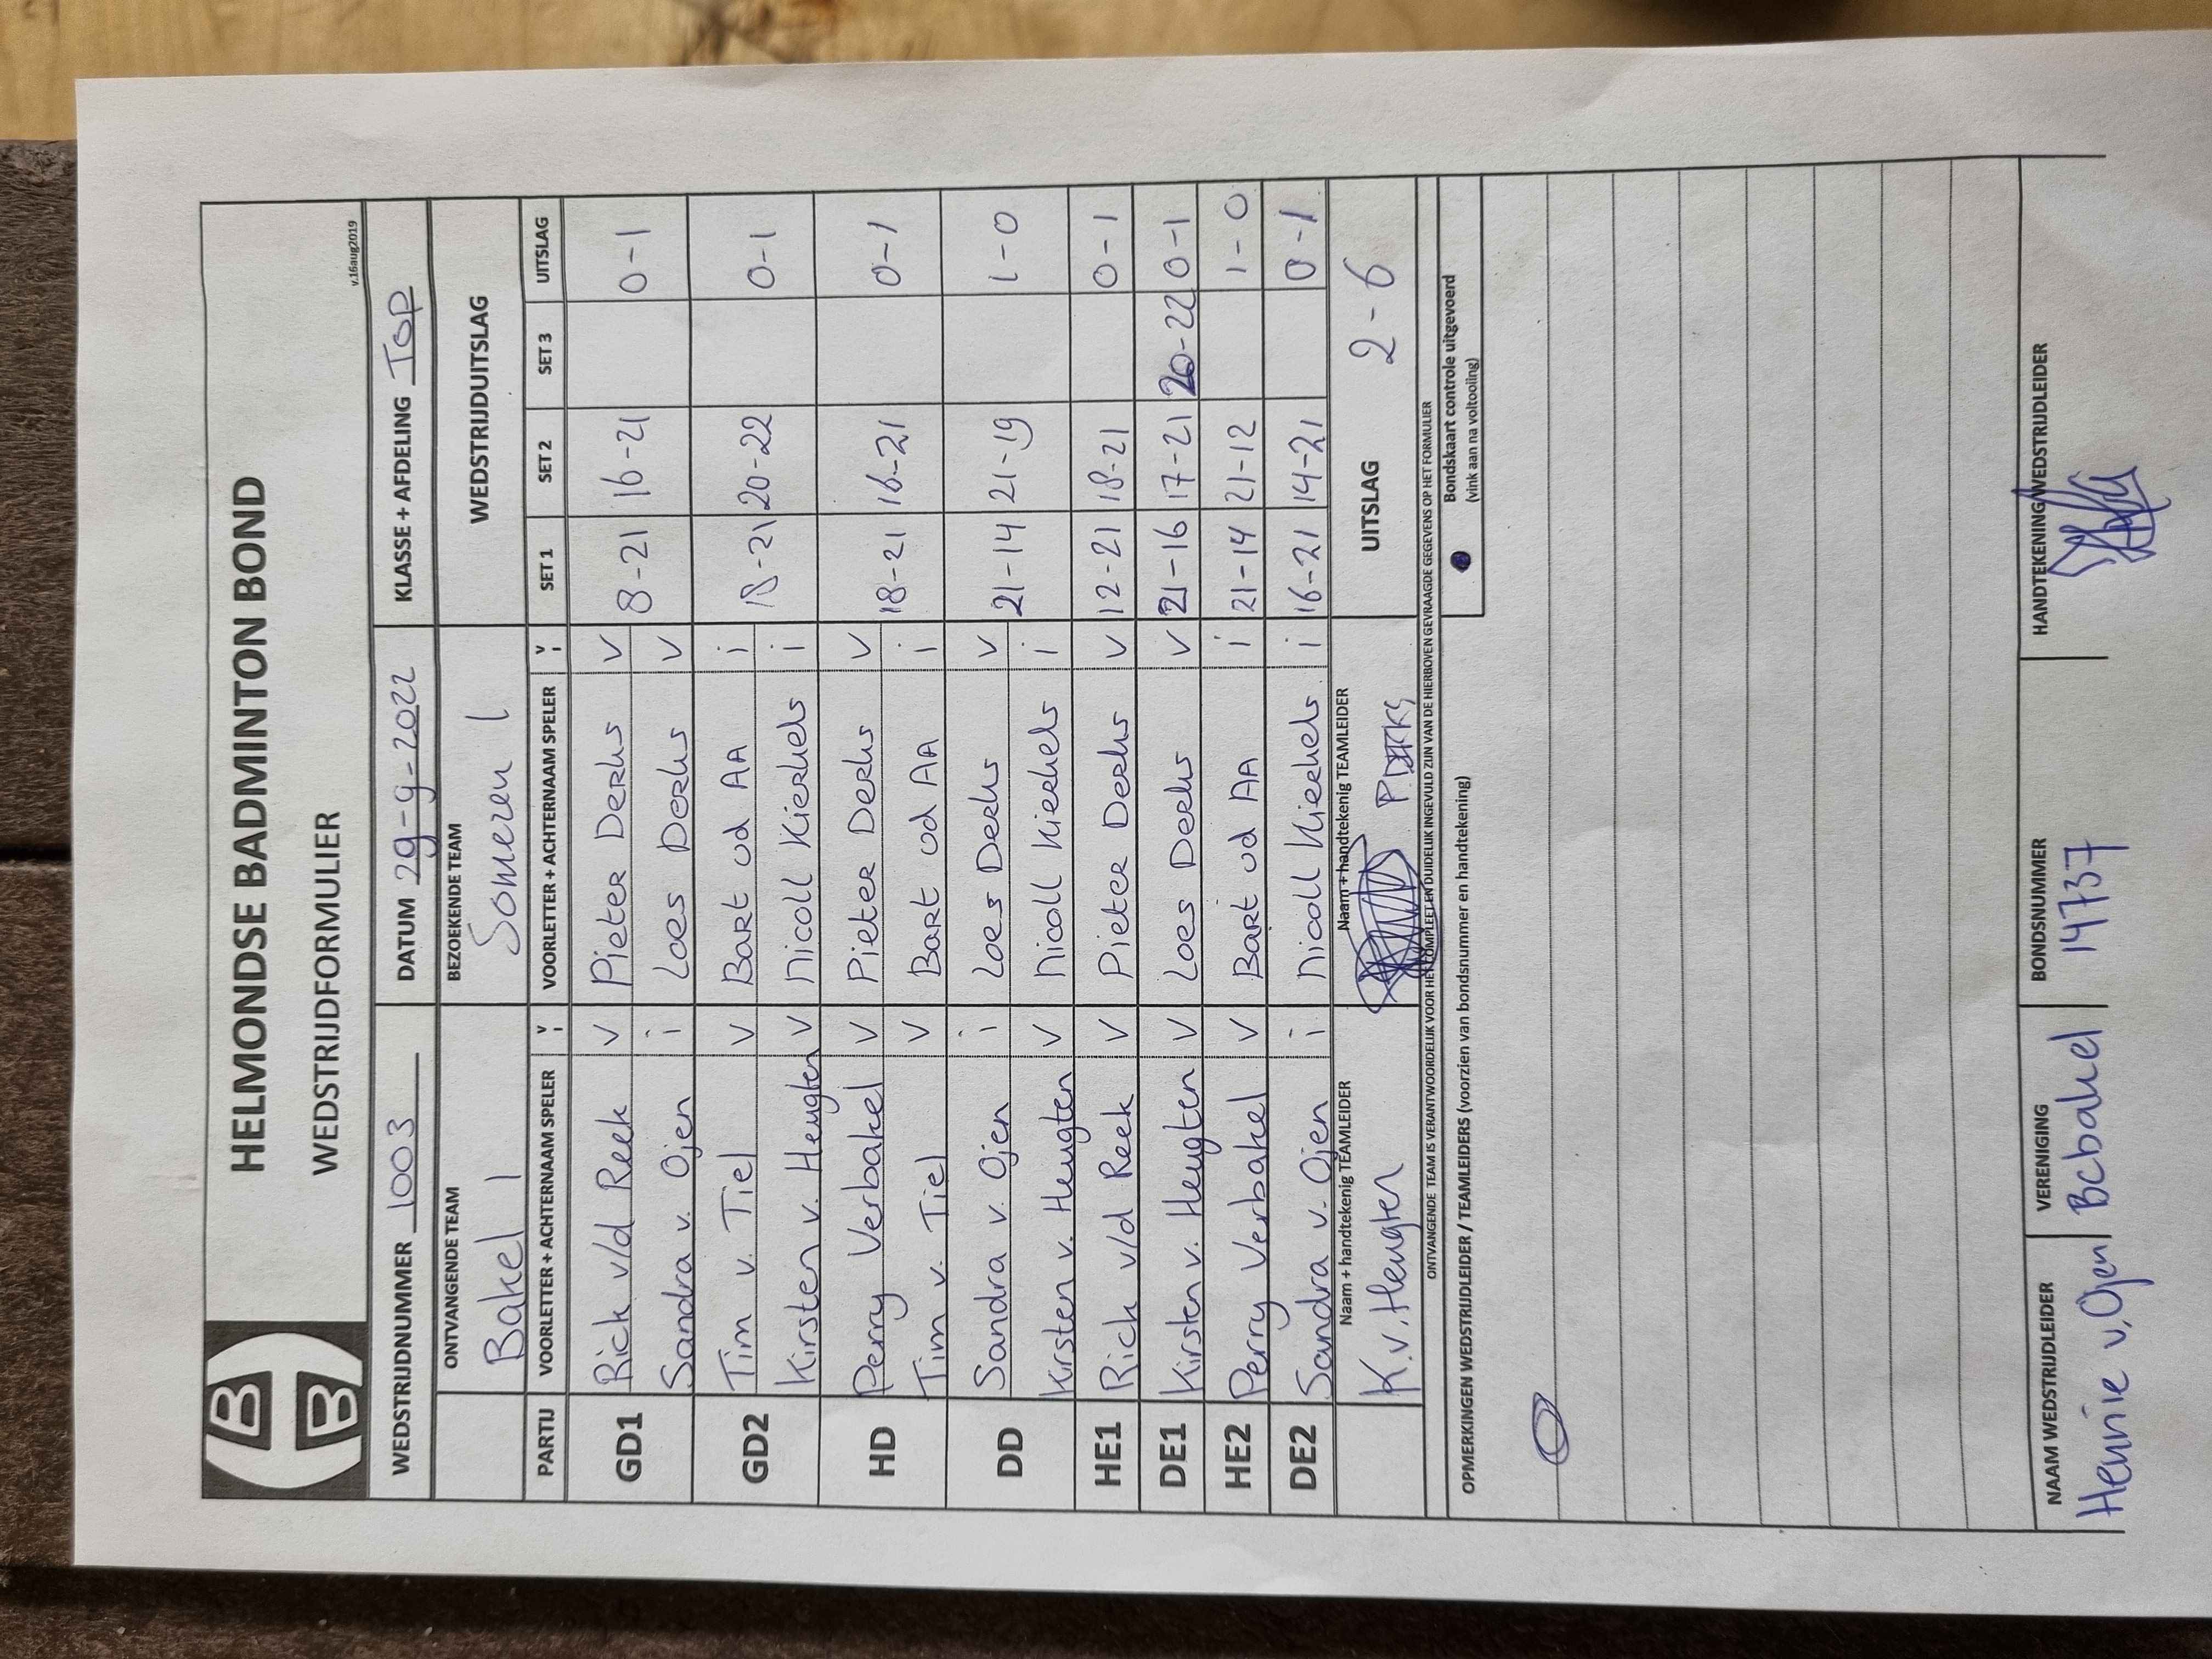 HELMONDSE BADMINTON BOND
WEDSTRIJDFORMULIER
v.16aug2019
WEDSTRIJDNUMMER 1003 DATUM 29-9-2022 KLASSE + AFDELING Top
ONTVANGENDE TEAM BEZOEKENDE TEAM WEDSTRIJDUITSLAG
Bakel 1 Someren 1
PARTIJ VOORLETTER + ACHTERNAAM SPELER v i VOORLETTER + ACHTERNAAM SPELER v i SET 1 SET 2 SET 3 UITSLAG
GD1 Rick v/d Reek v Pieter Derks v 8-21 16-21 0-1
Sandra v. Ojen i Loes Derks v
GD2 Tim v. Tiel v Bart vd AA i 18-21 20-22 0-1
Kirsten v. Heugten v Nicoll Kierkels i
HD Perry Verbakel v Pieter Derks v 18-21 16-21 0-1
Tim v. Tiel v Bart vd AA i
DD Sandra v. Ojen i Loes Derks v 21-14 21-19 1-0
Kirsten v. Heugten v Nicoll Kierkels i
HE1 Rick v/d Reek v Pieter Derks v 12-21 18-21 0-1
DE1 Kirsten v. Heugten v Loes Derks v 21-16 17-21 20-22 0-1
HE2 Perry Verbakel v Bart vd AA i 21-14 21-12 1-0
DE2 Sandra v. Ojen i Nicoll Kierkels i 16-21 14-21 0-1
Naam + handtekenig TEAMLEIDER Naam + handtekenig TEAMLEIDER UITSLAG 2-6
K.v. Heugten P DERKS
ONTVANGENDE TEAM IS VERANTWOORDELIJK VOOR HET COMPLEET EN DUIDELIJK INGEVULD ZIJN VAN DE HIERBOVEN GEVRAAGDE GEGEVENS OP HET FORMULIER
OPMERKINGEN WEDSTRIJDLEIDER / TEAMLEIDERS (voorzien van bondsnummer en handtekening)
Bondskaart controle uitgevoerd
(vink aan na voltooling)
NAAM WEDSTRIJDLEIDER VERENIGING BONDSNUMMER HANDTEKENING WEDSTRIJDLEIDER
Hennie v. Ojen Bcbakel 147737